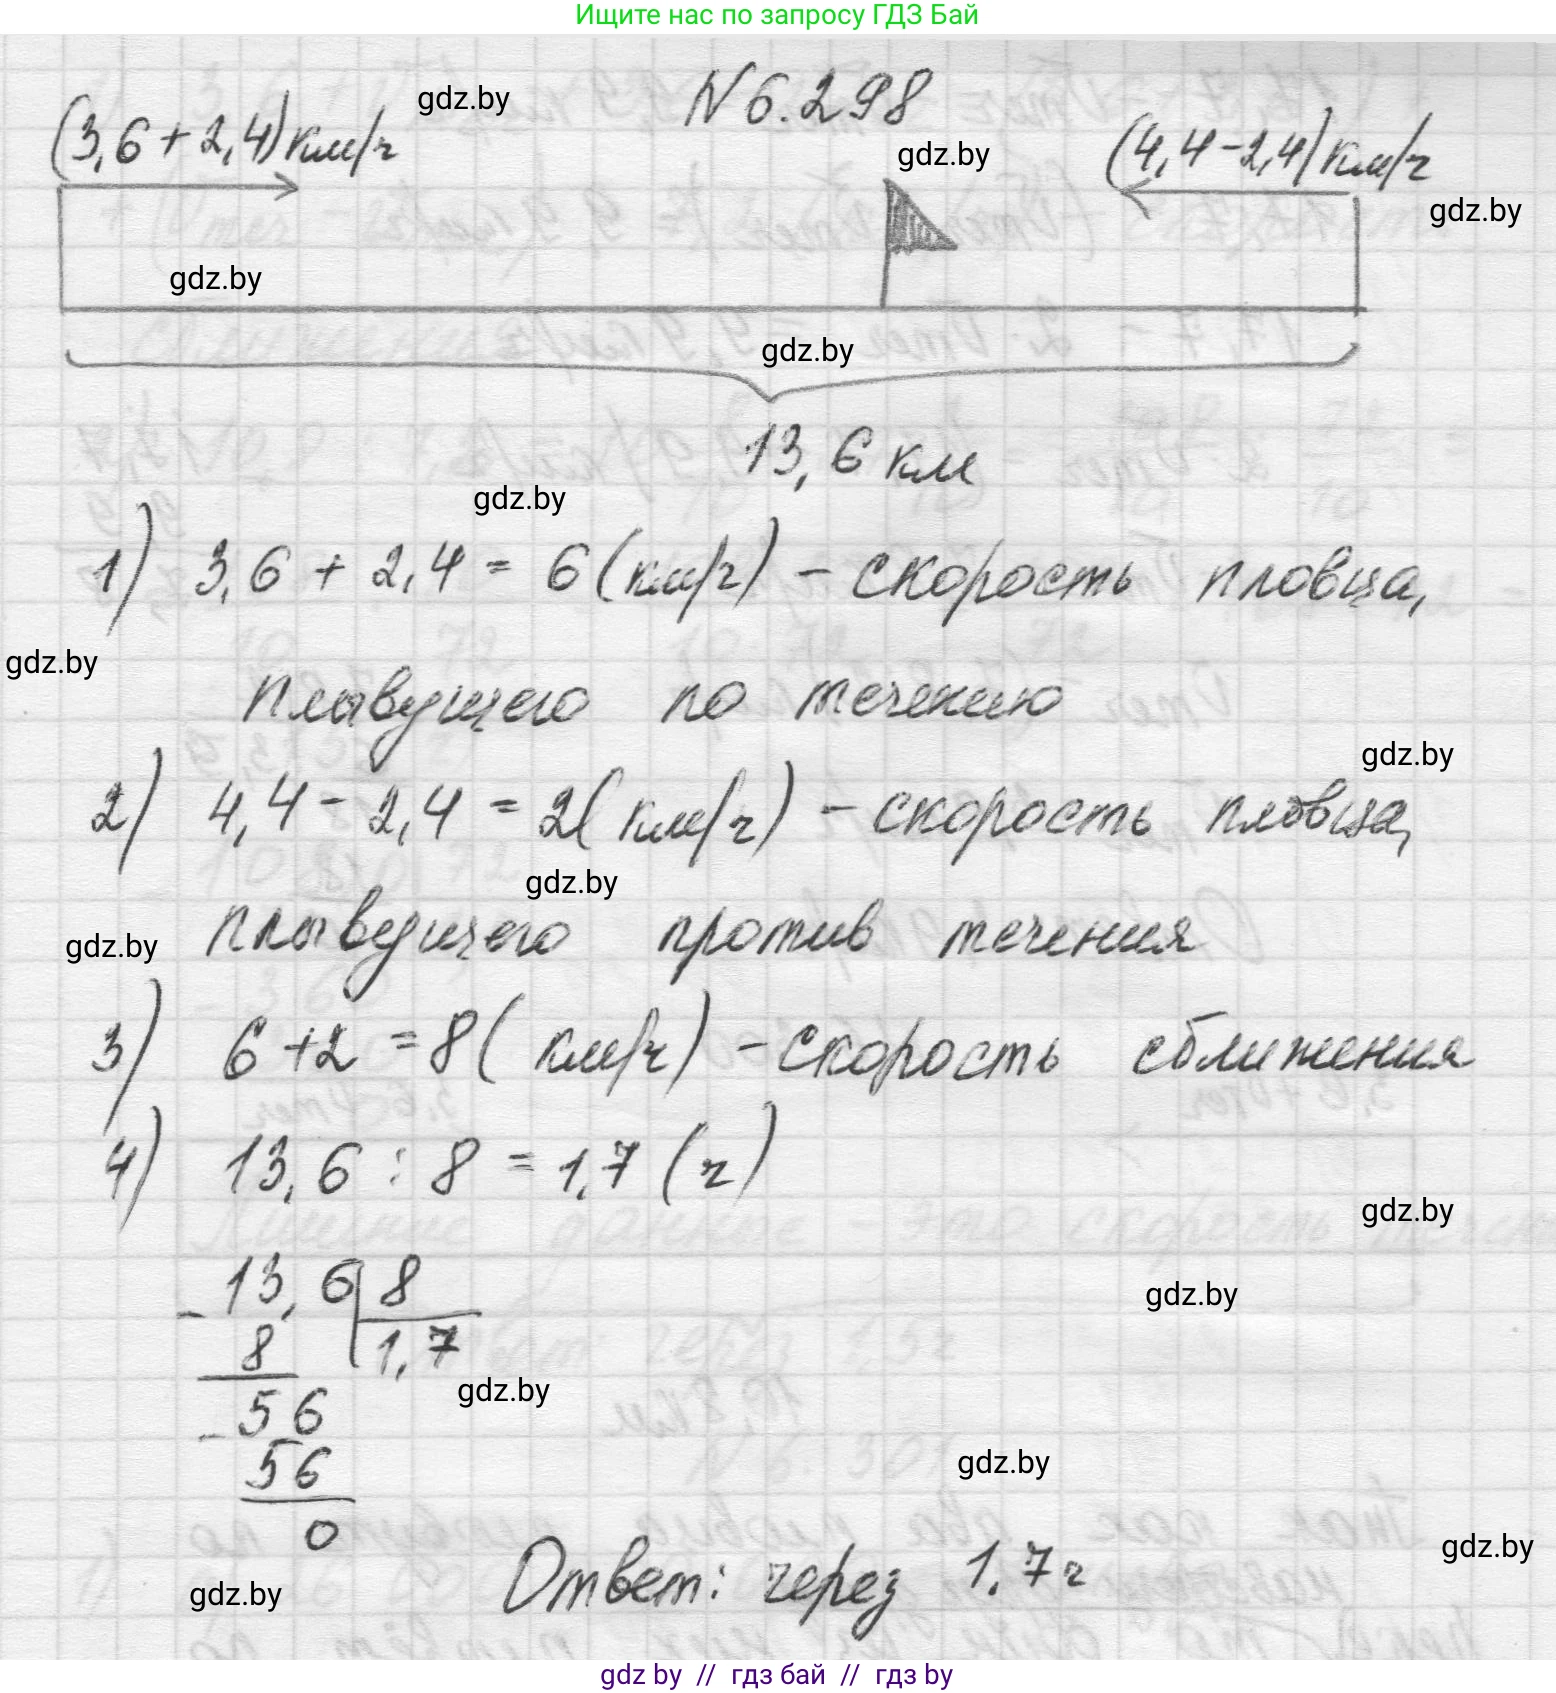 Ищите нас по запросу ГДЗ Бай
N 6.298
gdz.by
(3,6 + 2,4) км/ч
gdz.by
(4,4 - 2,4) км/ч
gdz.by
gdz.by
gdz.by
13,6 км
gdz.by
1) 3,6 + 2,4 = 6 (км/ч) - скорость пловца,
gdz.by
плывущего по течению
gdz.by
2) 4,4 - 2,4 = 2 (км/ч) - скорость пловца,
gdz.by
плывущего против течения
gdz.by
3) 6 + 2 = 8 (км/ч) - скорость сближения
4) 13,6 : 8 = 1,7 (ч)
gdz.by
- 13,6 | 8
gdz.by
8 1,7
gdz.by
- 56
56
gdz.by
0
gdz.by
Ответ: через 1,7 ч
gdz.by
gdz by // гдз бай // гдз by